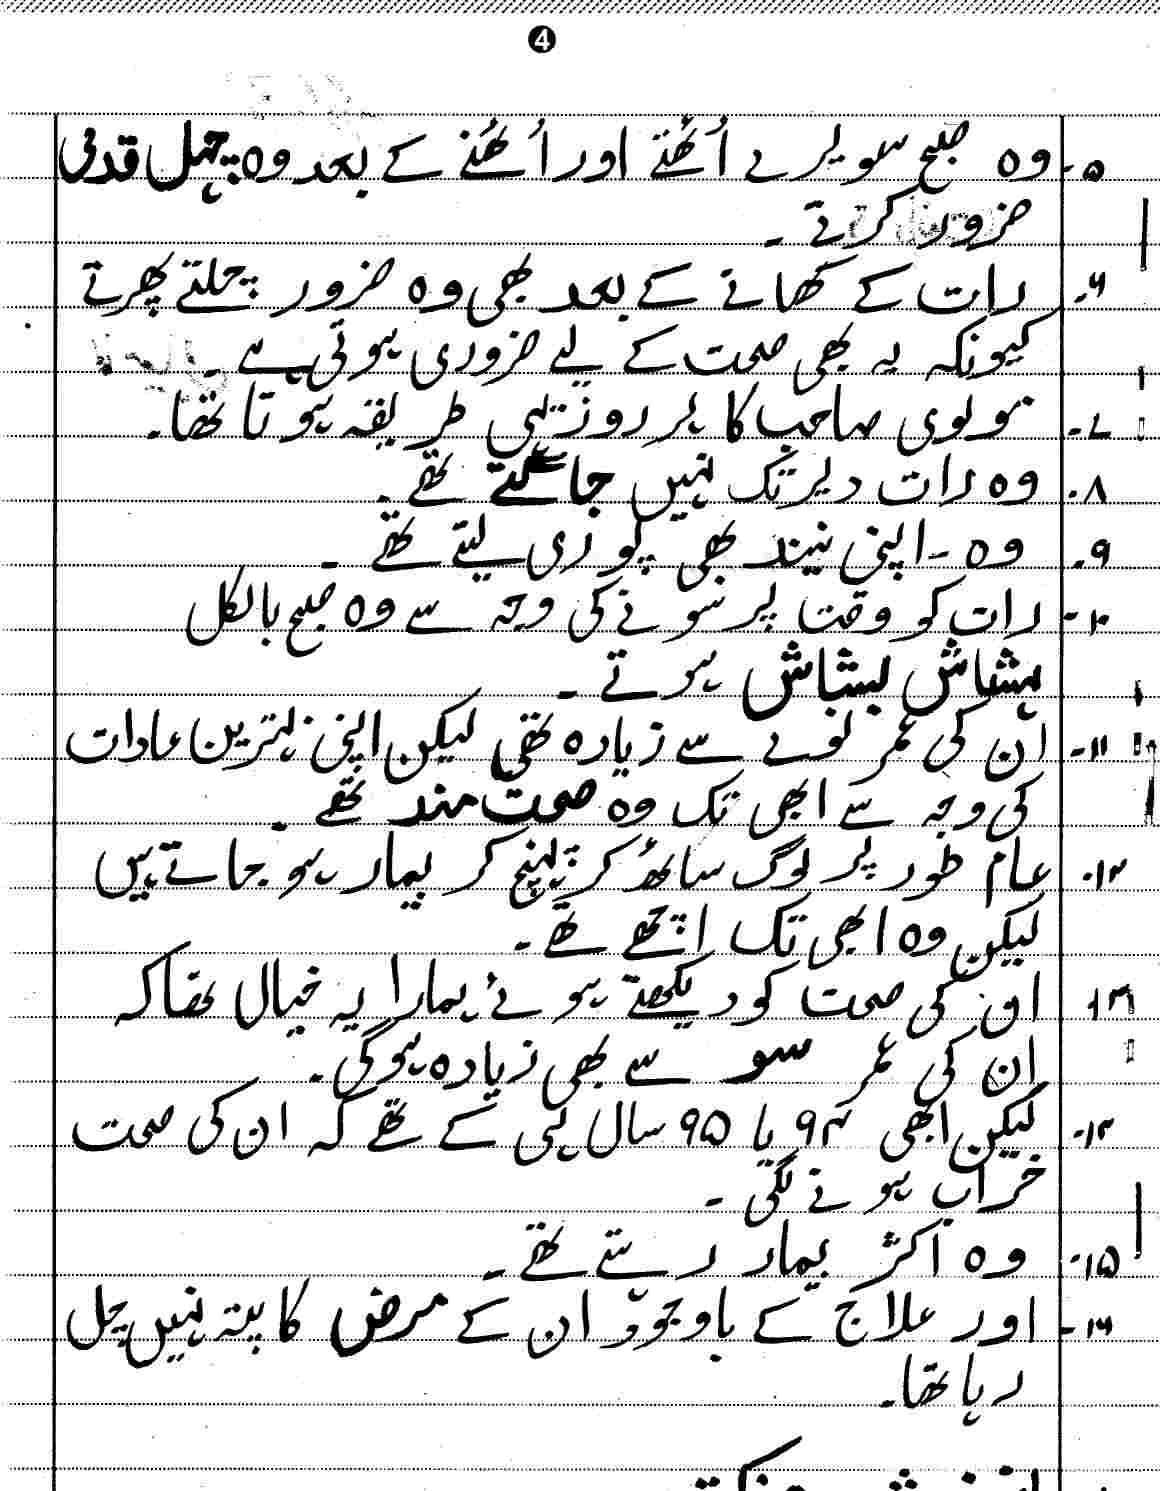 4
۵۔ وہ صبح سویرے اُٹھتے اور اُٹھنے کے بعد وہ چہل قدمی
ضرور کرتے ۔
۶۔ رات کے کھانے کے بعد بھی وہ ضرور چلتے پھرتے
کیونکہ یہ بھی صحت کے لیے ضروری ہوتی ہے ۔
۷۔ مولوی صاحب کا ہر روز یہی طریقہ ہوتا تھا۔
۸۔ وہ رات دیر تک نہیں جاگتے تھے ۔
۹۔ وہ اپنی نیند بھی پوری لیتے تھے ۔
۱۰۔ رات کو وقت پر سونے کی وجہ سے وہ صبح بالکل
ہشاش بشاش ہوتے ۔
۱۱۔ ان کی عمر نوے سے زیادہ تھی لیکن اپنی بہترین عادات
کی وجہ سے ابھی تک وہ صحت مند تھے ۔
۱۲۔ عام طور پر لوگ ساٹھ کر پہنچ کر بیمار ہو جاتے ہیں
لیکن وہ ابھی تک اچھے تھے ۔
۱۳۔ ان کی صحت کو دیکھتے ہوئے ہمارا یہ خیال تھا کہ
ان کی عمر سو سے بھی زیادہ ہوگی ۔
۱۴۔ لیکن ابھی ۹۴ یا ۹۵ سال ہی کے تھے کہ ان کی صحت
خراب ہونے لگی ۔
۱۵۔ وہ اکثر بیمار رہتے تھے ۔
۱۶۔ اور علاج کے باوجود ان کے مرض کا پتہ نہیں چل
رہا تھا۔